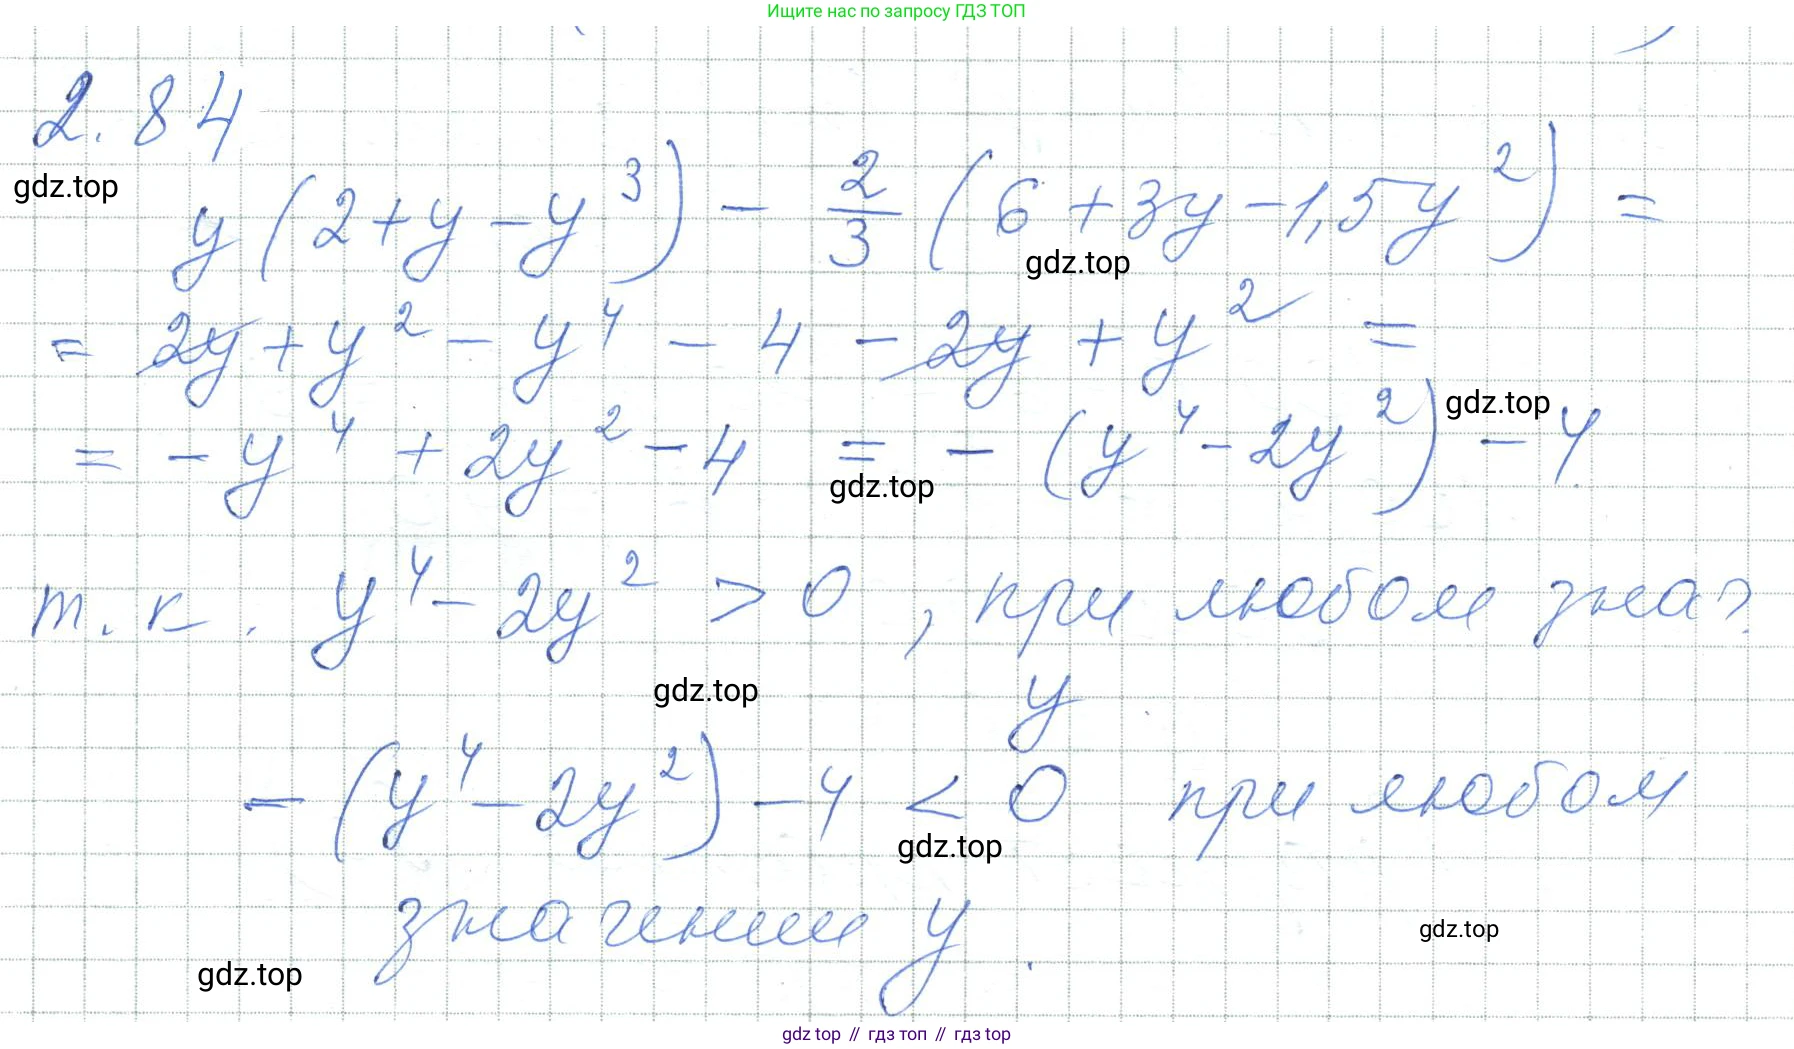 Ищите нас по запросу ГДЗ ТОП
2.84
gdz.top
y(2+y-y³) - 2/3 (6+3y-1,5y²) =
gdz.top
= 2y+y² - y⁴ - 4 - 2y + y² =
gdz.top
= -y⁴ + 2y² - 4 = -(y⁴-2y²) - 4
gdz.top
т.к. y⁴ - 2y² > 0, при любом знач.
gdz.top
y
-(y⁴-2y²) - 4 < 0 при любом
gdz.top
значении y.
gdz.top
gdz.top
gdz top // гдз топ // гдз top